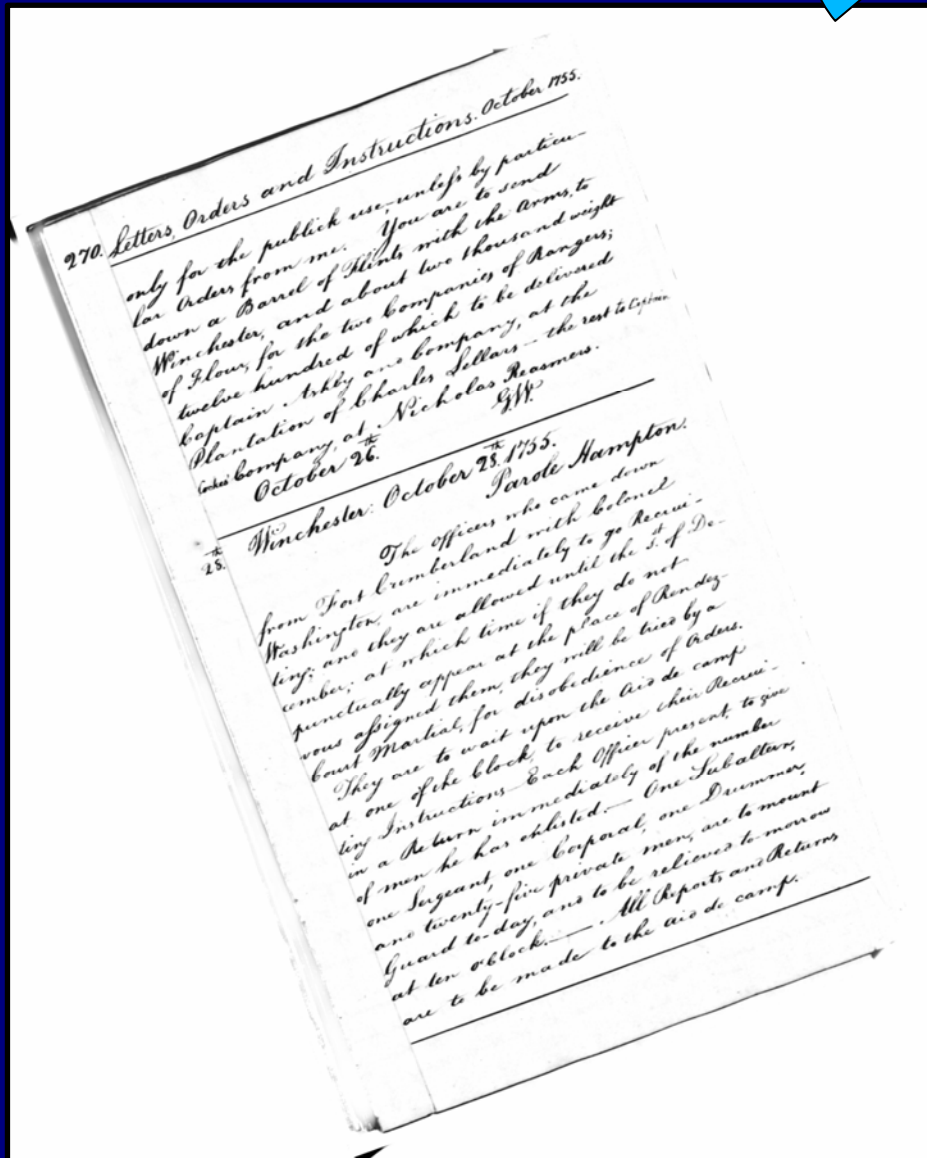 270. Letters, Orders and Instructions. October 1755.
only for the publick use, unless by particu-
lar Orders from me. You are to send
down a Barrel of Flints with the Arms, to
Winchester, and about two thousand weight
of Flour, for the two Companies of Rangers;
twelve hundred of which to be delivered
Captain Ashby and Company, at the
Plantation of Charles Sellars - the rest to Captain
Cockes Company, at Nicholas Reasmers.
October 26.th G.W.
Winchester: October 28.th 1755.
Parole Hampton.
28.th
The Officers who came down
from Fort Cumberland with Colonel
Washington, are immediately to go Recrui-
ting; and they are allowed until the 1.st of De-
cember; at which time if they do not
punctually appear at the place of Rendez-
vous assigned them, they will be tried by a
Court Martial, for disobedience of Orders.
They are to wait upon the Aid de camp
at one of the Clock, to receive their Recrui-
ting Instructions - Each Officer present, to give
in a Return immediately of the number
of men he has enlisted. - One Subaltern,
one Sergeant, one Corporal, one Drummer,
and twenty-five private men, are to mount
Guard to-day, and to be relieved to-morrow
at ten o'Clock. - All Reports and Returns
are to be made to the Aid de camp.